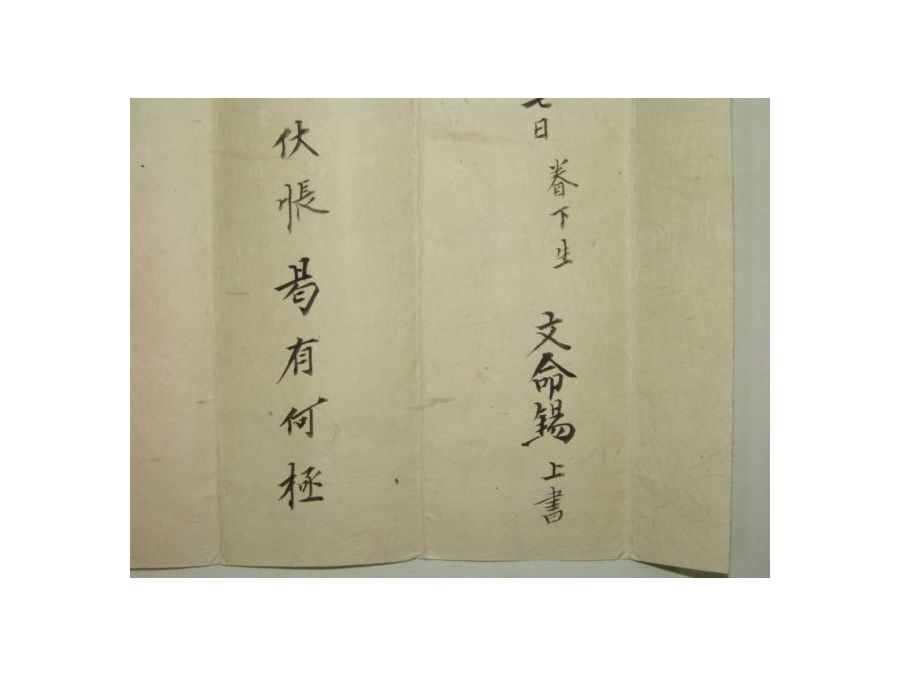 七日 眷下生 文命錫 上書
伏悵曷有何極